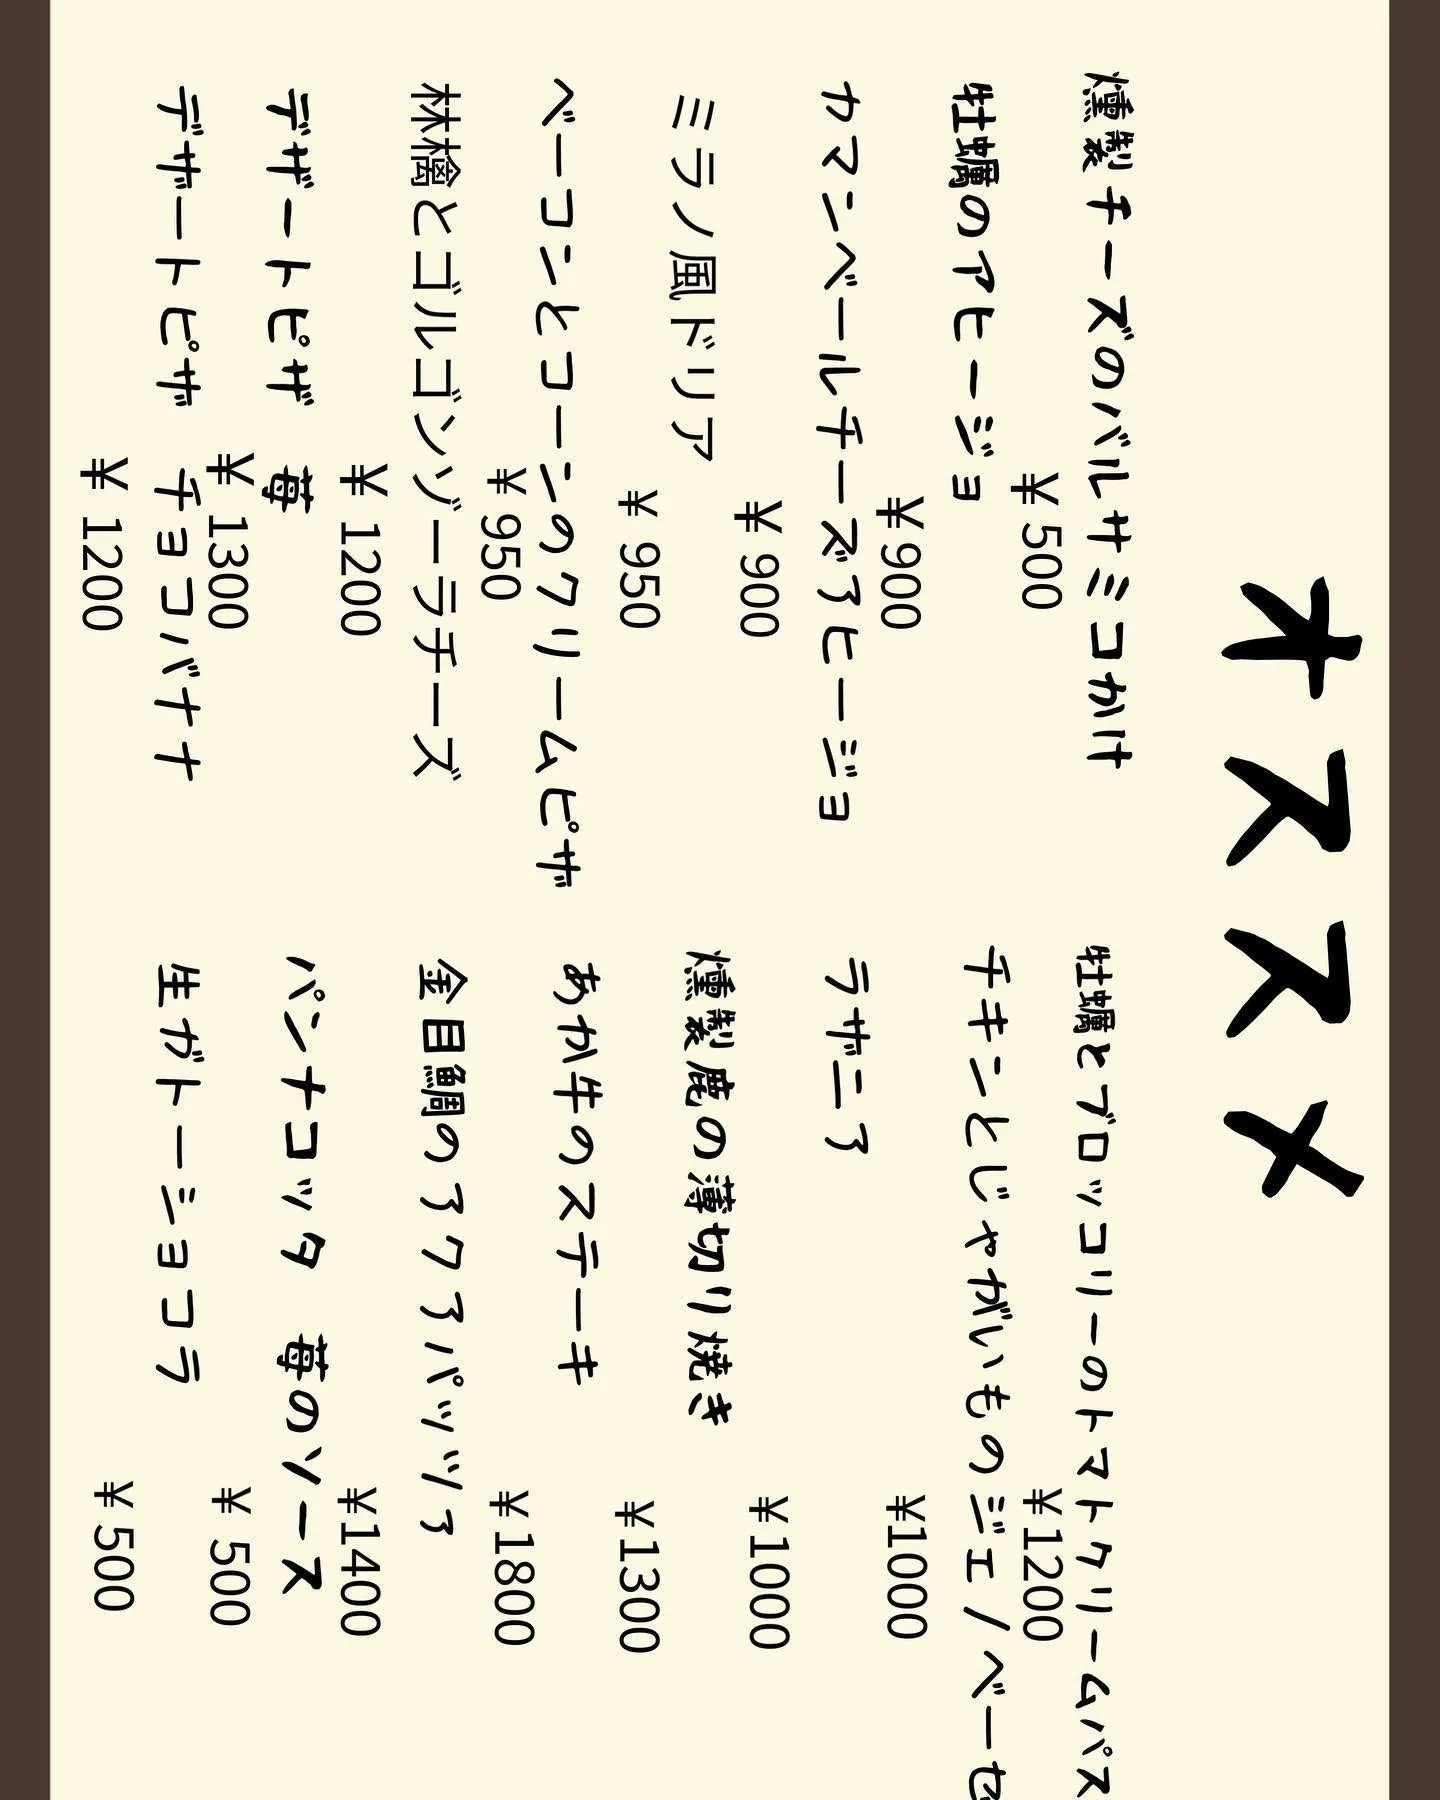 オススメ
燻製チーズのバルサミコかけ
¥ 500
牡蠣のアヒージョ
¥ 900
カマンベールチーズアヒージョ
¥ 900
ミラノ風ドリア
¥ 950
ベーコンとコーンのクリームピザ
¥ 950
林檎とゴルゴンゾーラチーズ
¥ 1200
デザートピザ 苺
¥ 1300
デザートピザ チョコバナナ
¥ 1200
牡蠣とブロッコリーのトマトクリームパス
¥1200
チキンとじゃがいものジェノベーゼ
¥1000
ラザニア
¥1000
燻製鹿の薄切り焼き
¥1300
あか牛のステーキ
¥1800
金目鯛のアクアパッツァ
¥1400
パンナコッタ 苺のソース
¥ 500
生ガトーショコラ
¥ 500